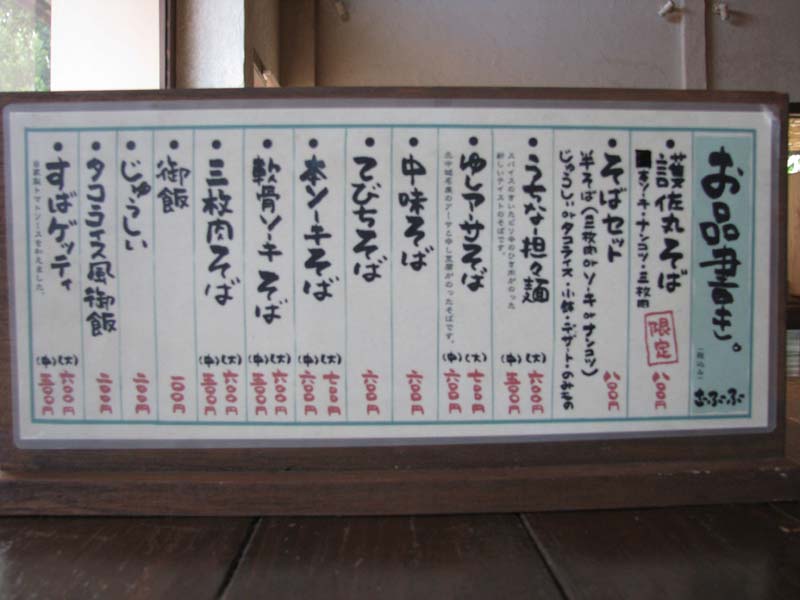 お品書き。
(税込み)
むぶぶ
護佐丸そば
本ソーキ・ナンコツ・三枚肉
限定
八〇〇円
そばセット
半そば(三枚肉orソーキorナンコツ)
じゅうしぃorタコライス・小鉢・デザート・のみもの
八〇〇円
うちなー担々麺
スパイスのきいたピリ辛のひき肉がのった
新しいテイストのそばです。
(大) 六〇〇円
(中) 五〇〇円
ゆしアーサそば
北中城名産のアーサとゆし豆腐がのったそばです。
(大) 七〇〇円
(中) 六〇〇円
中味そば
六〇〇円
てびちそば
六〇〇円
本ソーキそば
(大) 七〇〇円
(中) 六〇〇円
軟骨ソーキそば
(大) 六〇〇円
(中) 五〇〇円
三枚肉そば
(大) 六〇〇円
(中) 五〇〇円
御飯
一〇〇円
じゅうしぃ
二〇〇円
タコライス風御飯
二〇〇円
すばゲッティ
自家製トマトソースをかえました。
(大) 六〇〇円
(中) 五〇〇円